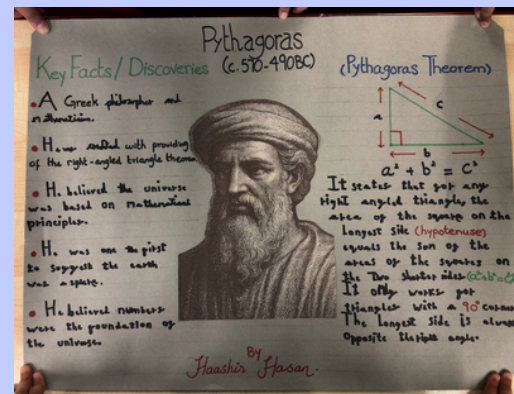 Pythagoras
(c.570-490BC)
Key Facts/Discoveries
• A Greek philosopher and
mathematician.
• He was credited with providing
of the right-angled triangle theorem
• He believed the universe
was based on Mathematical
principles.
• He was one the first
to suggest the earth
was a sphere.
• He believed numbers
were the foundation of
the universe.
(Pythagoras Theorem)
a
c
b
a² + b² = c²
It states that for any
right angled triangle, the
area of the square on the
Longest side (hypotenuse)
equals the sum of the
areas of the squares on
the Two shorter sides (a²+b²=c²)
It only works for
triangles with a 90° corner
The longest side is always
opposite the right angle.
By
Haashir Hasan.